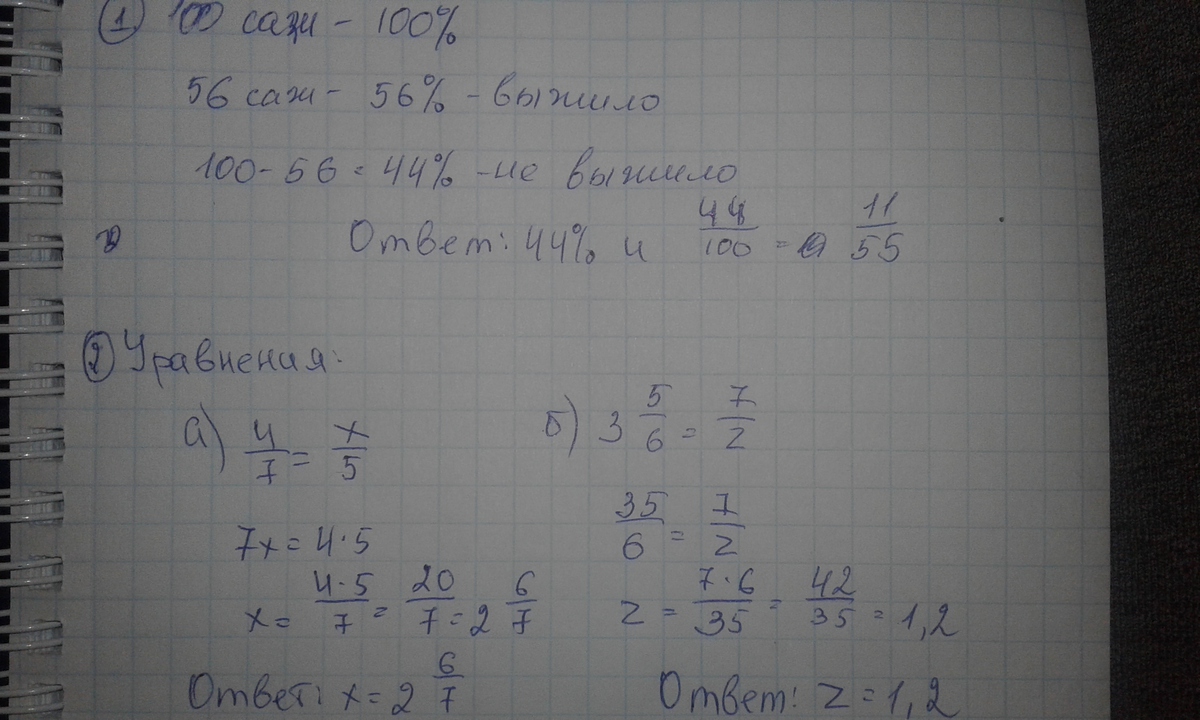 ① 100 саж - 100%
56 саж - 56% - выжило
100 - 56 = 44% - не выжило
Ответ: 44% и 44/100 = 11/55
② Уравнения:
а) 4/7 = x/5
7x = 4·5
x = 4·5/7 = 20/7 = 2 6/7
Ответ: x = 2 6/7
б) 3 5/6 = 7/z
35/6 = 7/z
z = 7·6/35 = 42/35 = 1,2
Ответ: z = 1,2